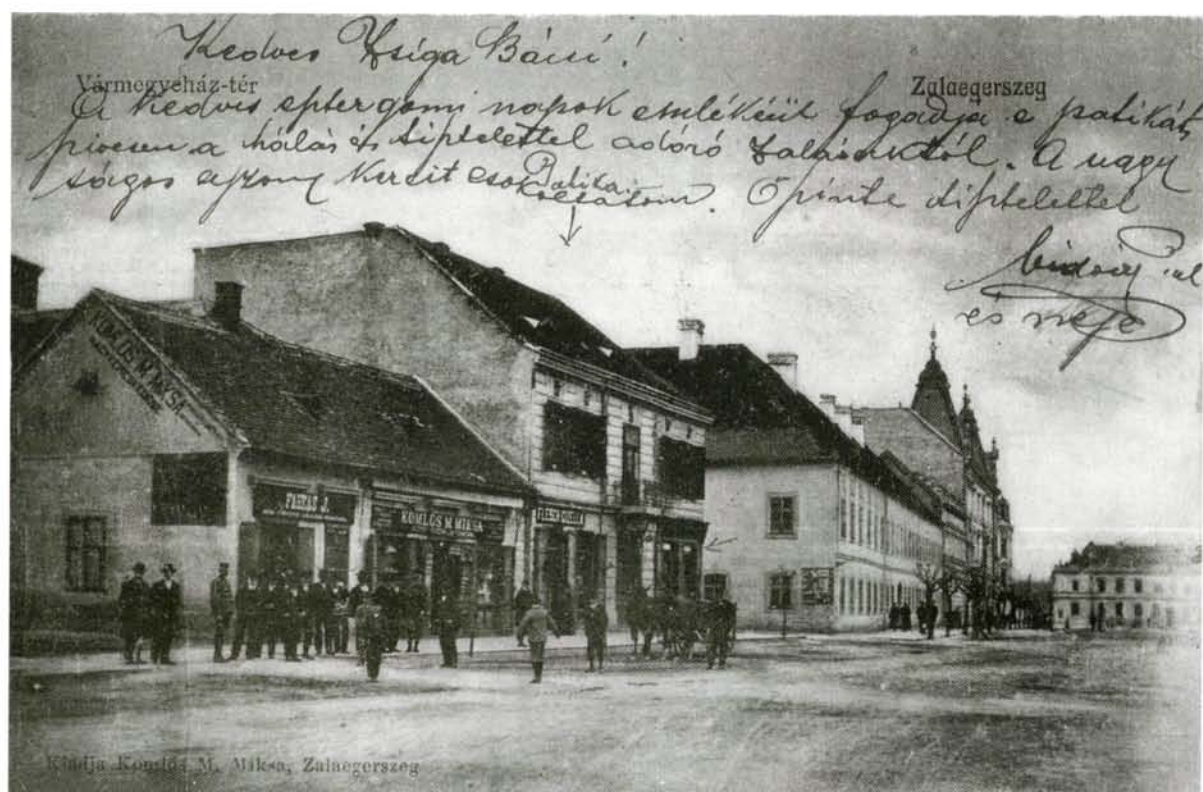 Kedves Zsiga Bácsi!
Vármegyeház-tér
Zalaegerszeg
A kedves esztergomi napok emlékéül fogadja e patikát,
a hálás és tisztelettel adózó zalaiaktól. A nagy
ságos asszony kezeit csókolom. Őszinte tisztelettel
Patika
és neje
KOMLÓS M. MIKSA
PASZAS J.
KOMLÓS M. MIKSA
Kiadja Komlós M. Miksa, Zalaegerszeg